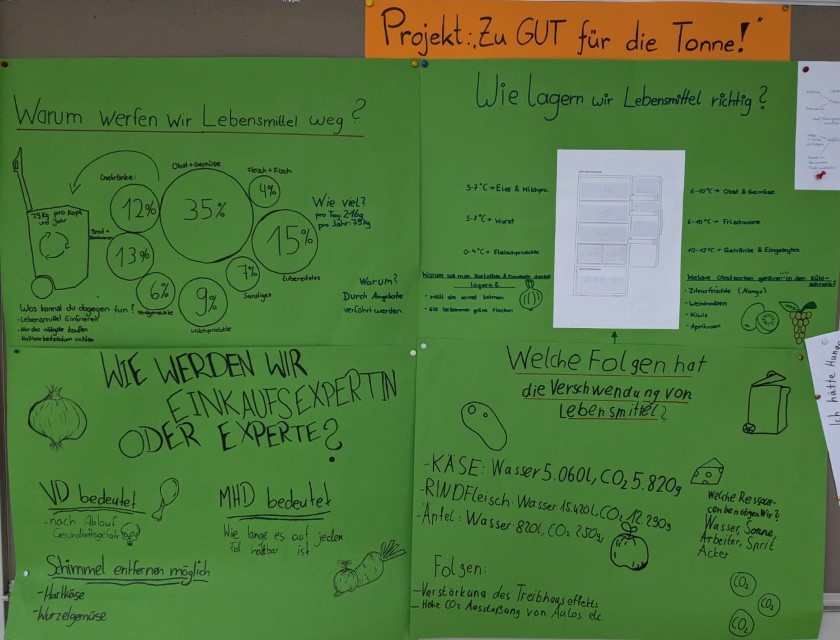 Projekt: „Zu GUT für die Tonne!"
Warum werfen wir Lebensmittel weg?
Getränke:
Obst + Gemüse
Fleisch + Fisch
12%
35%
4%
15%
13%
6%
9%
7%
Zubereitetes
Sonstiges
Milchprodukte
75 Kg pro Kopf
und Jahr
Wie viel?
pro Tag: 216g
pro Jahr: 75kg
Warum?
Durch Angebote
verführt werden.
Was kannst du dagegen tun?
-Lebensmittel Einfrieren
-Nur das nötigste kaufen
-Haltbarkeitsdatum achten
Wie lagern wir Lebensmittel richtig?
5-7°C → Eier & Milchpro.
5-7°C → Wurst
0-4°C → Fleischprodukte
6-10°C → Obst & Gemüse
10-12°C → Getränke & Eingelegtes
lagern?
- weil sie sonst keimen
- sie bekommen grüne Flecken
Welche Obstsorten gehören in den Kühl-
schrank?
- Zitrusfrüchte (Mango)
- Weintrauben
- Kiwis
- Aprikosen
WIE WERDEN WIR
EINKAUFSEXPERTIN
ODER EXPERTE?
VD bedeutet
-nach Ablauf
Gesundheitsgefahr
MHD bedeutet
Wie lange es auf jeden
fall haltbar ist
Schimmel entfernen möglich
-Hartkäse
-Wurzelgemüse
Welche Folgen hat
die Verschwendung von
Lebensmittel?
-KÄSE: Wasser 5.060l, CO2 5.820g
-RINDFleisch: Wasser 15.420l, CO2 12.290g
-Äpfel: Wasser 820l, CO2 250g
Welche Ressour-
cen benötigen Wir?
Wasser, Sonne,
Arbeiter, Sprit
Acker
Folgen:
-Verstärkung des Treibhauseffekts
-Hohe CO2 Ausstoßung von Autos etc.
CO2
CO2
CO2
Ich hätte Hung